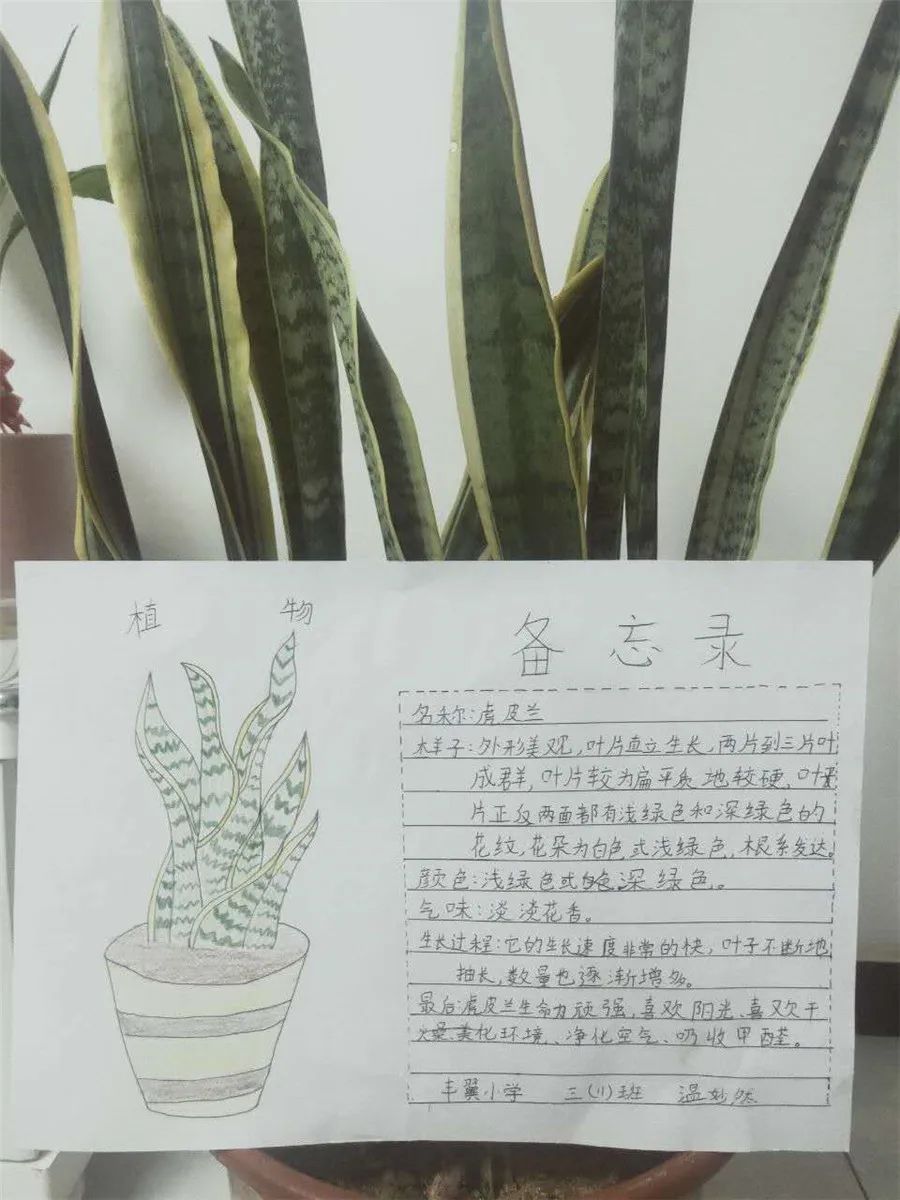 植 物
备 忘 录
名称:虎皮兰
样子:外形美观,叶片直立生长,两片到三片叶
成群,叶片较为扁平质地较硬,叶
片正反两面都有浅绿色和深绿色的
花纹,花朵为白色或浅绿色,根系发达。
颜色:浅绿色或深绿色。
气味:淡淡花香。
生长过程:它的生长速度非常的快,叶子不断地
抽长,数量也逐渐增多。
最后:虎皮兰生命力顽强,喜欢阳光、喜欢干
燥、美化环境、净化空气、吸收甲醛。
丰翼小学 三(11)班 温妙然